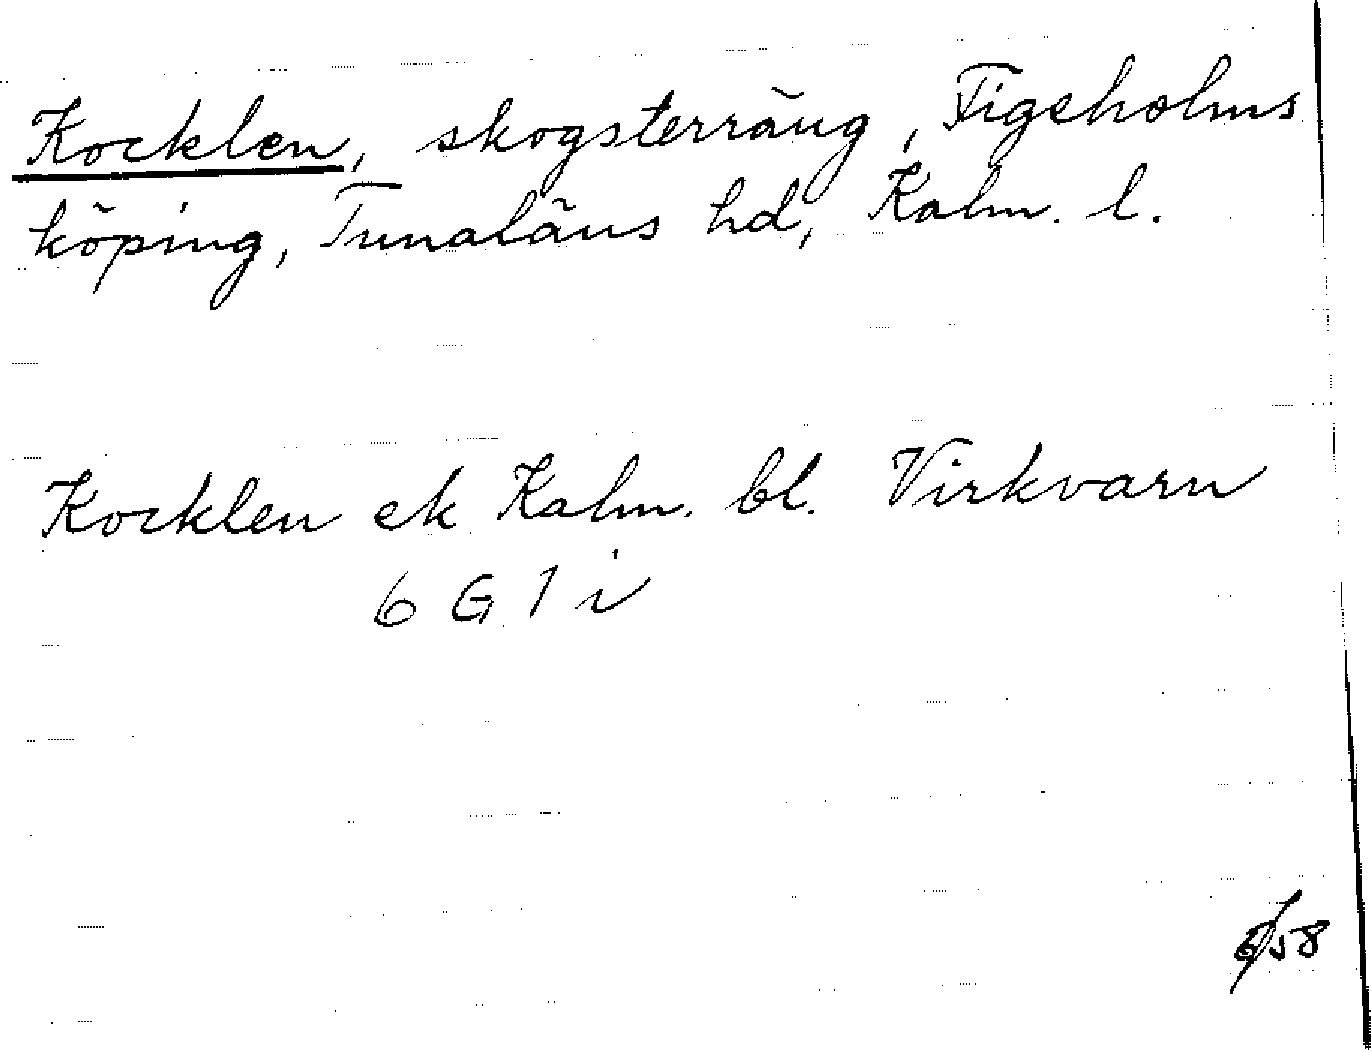 Kocklen, skogsterräng, Figeholms
köping, Tunaläns hd, Kalm. l.
Kocklen ek Kalm. bl. Virkvarn
6 G 1 i
6/58